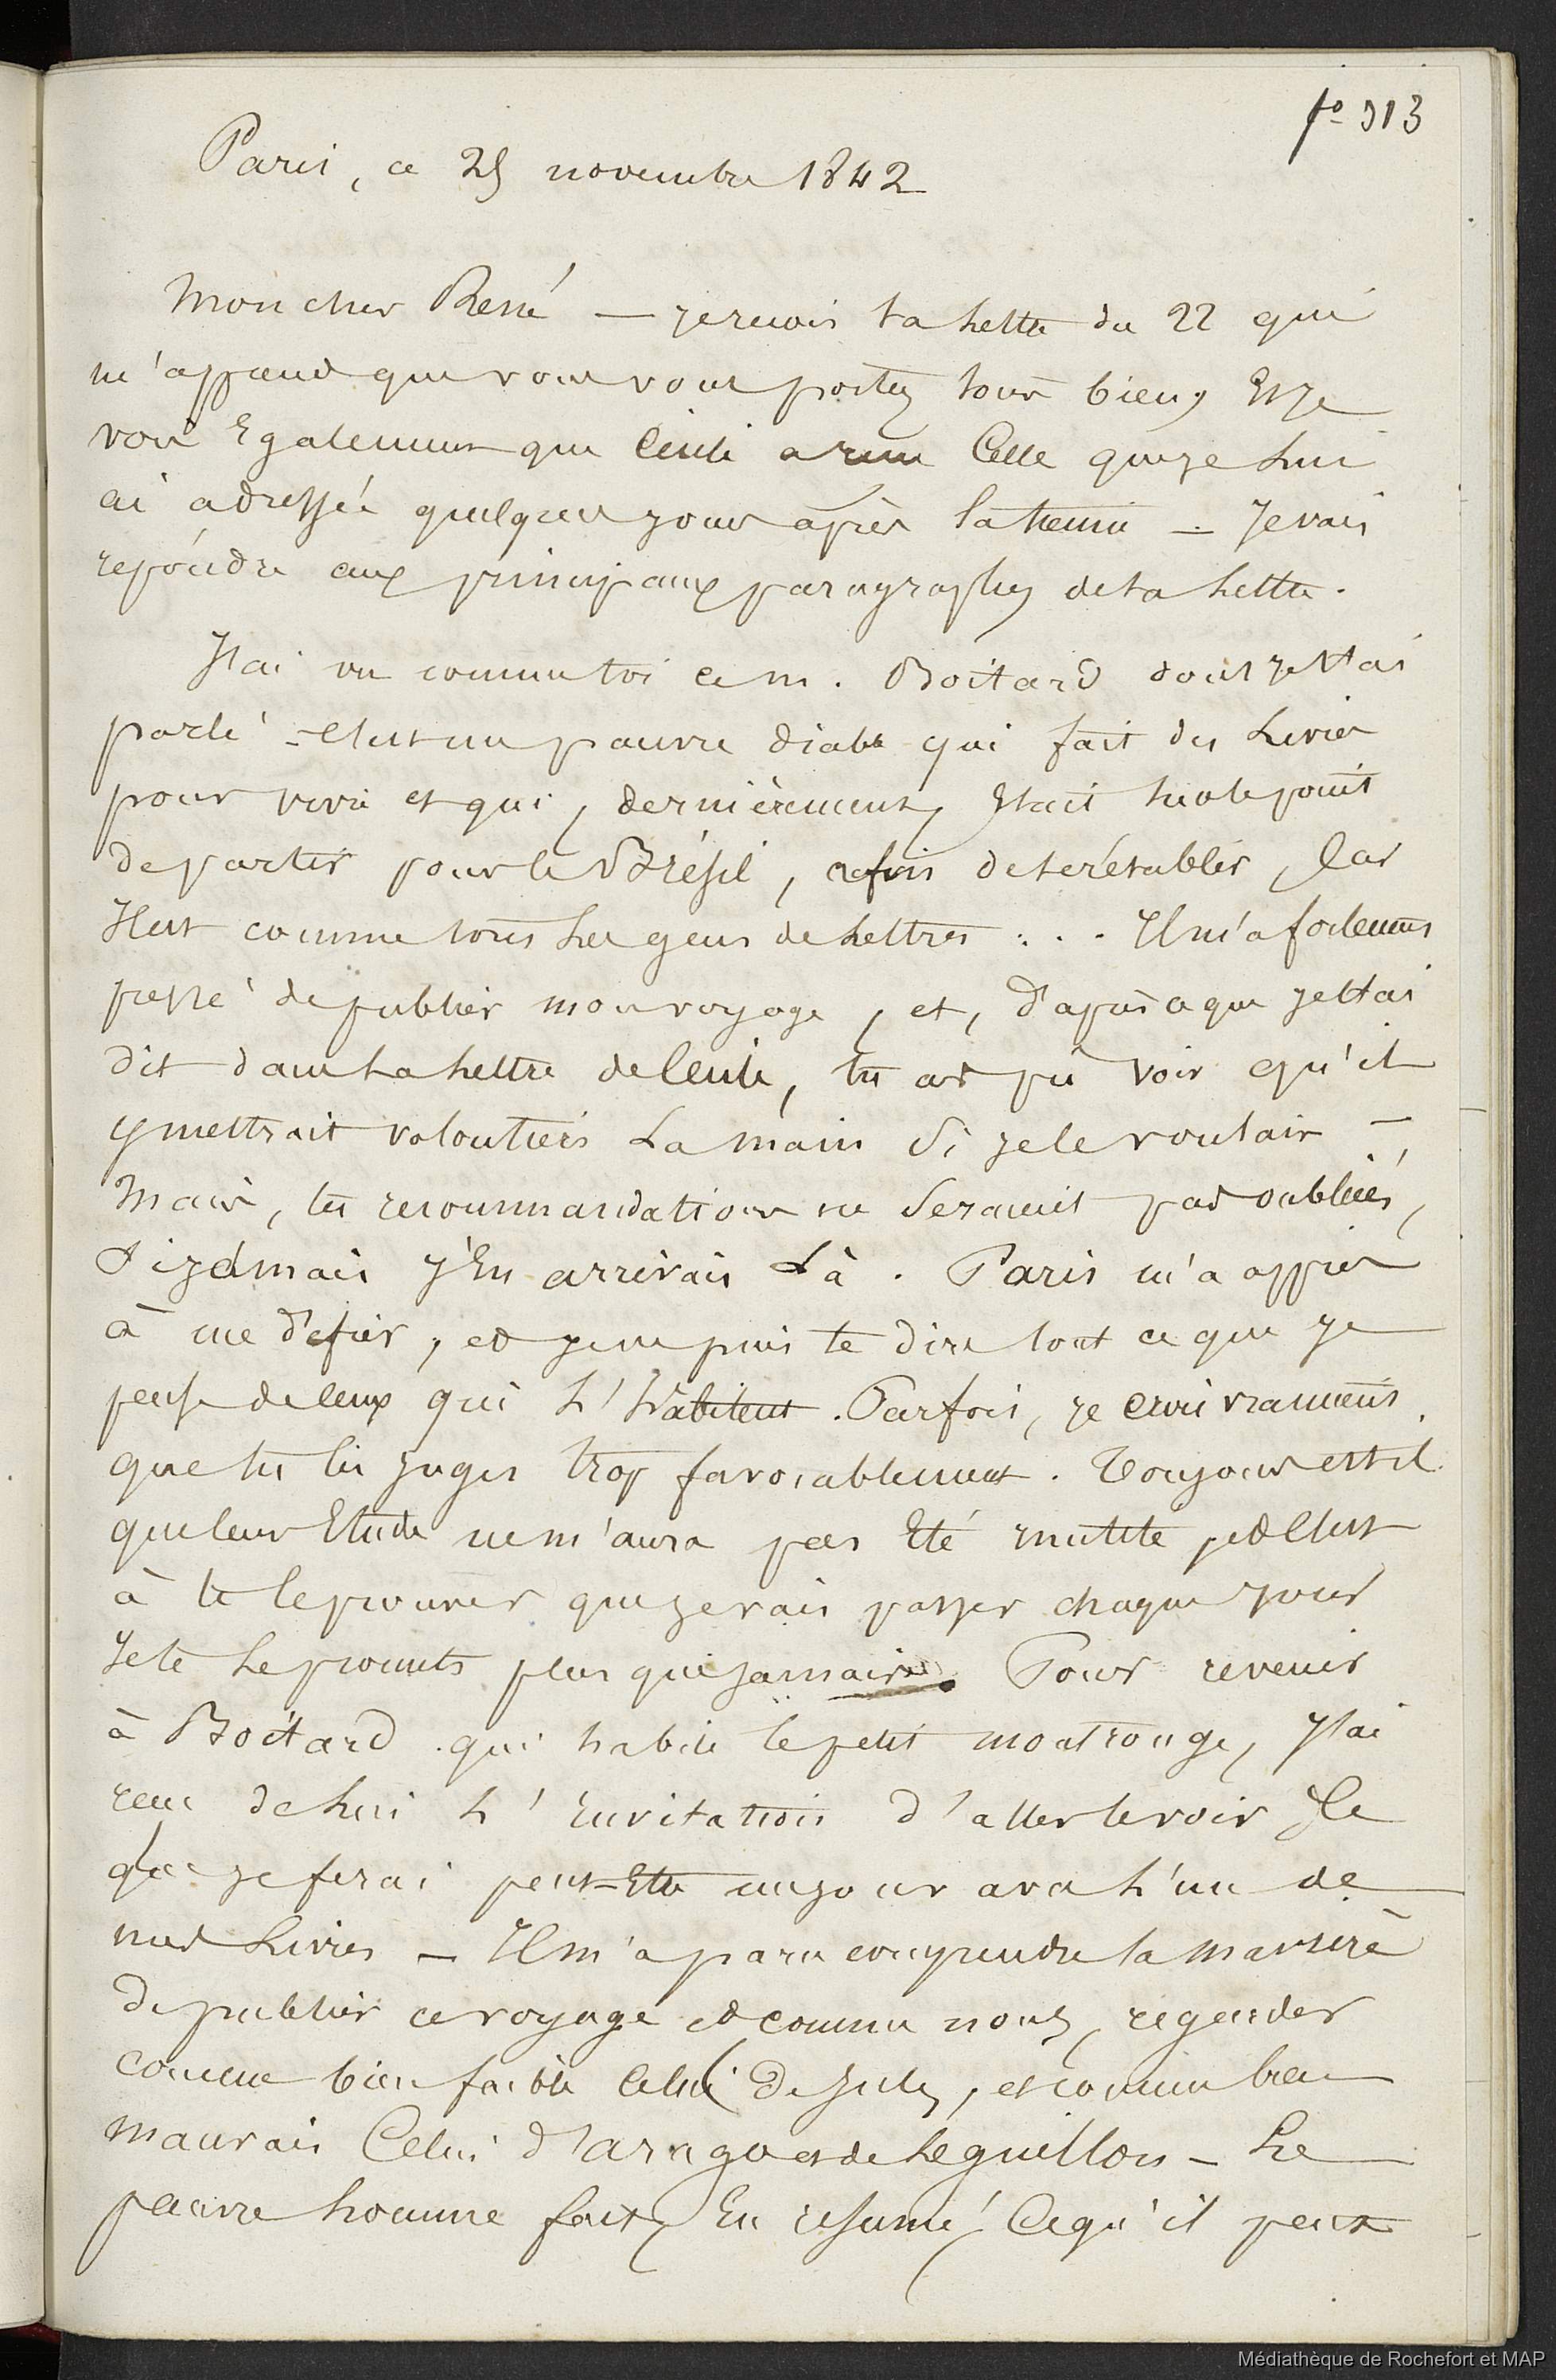 fo 313
Paris, ce 25 novembre 1842
Mon cher René — je reçois ta lettre du 22 qui
m'apprend que vous vous portez tous bien, Et je
vois Egalement que a reçu Celle que je lui
ai adressée quelques jours après la tienne — Je vais
repóndre aux principaux paragraphes de ta lettre.
J'ai vu comme toi ce m. Boitard dont je t'ai
parlé — C'est un pauvre diable qui fait des Livres
pour vivre et qui, dernièrement, Etait sur le point
de partir pour le Brésil, afin de se rétablir, Car
Il est comme tous les gens de lettres . . . Il m'a fortement
pressé de publier mon voyage, et, d'après ce que je t'ai
dit dans la lettre de , tu as pu voir qu'il
y mettrait volontiers La main Si je le voulais —
Mais, tes recommandations ne Seraient pas oubliées,
Si jamais j'En arrivais Là. Paris m'a appris
à me défier, et je ne puis te dire tout ce que je
pense de Ceux qui L'habitent. Parfois, je crois vraiment
que tu les juges trop favorablement. Toujours est-il
que leur Etude ne m'aura pas Eté inutile, et C'est
à te le prouver que je vais passer chaque jour
Je te le promets plus que jamais. Pour revenir
à Boitard qui habite le petit montrouge, J'ai
reçu de lui L'invitation d'aller le voir Ce
que je ferai peut-Etre un jour avec L'un de
mes Livres — Il m'a paru comprendre la manière
de publier ce voyage et comme nous, regarder
comme bien faible Celui de Jules, et comme bien
mauvais Celui d'arago et de Leguillon — Le
pauvre homme fait, En resumé, Ce qu'il peut
Médiathèque de Rochefort et MAP